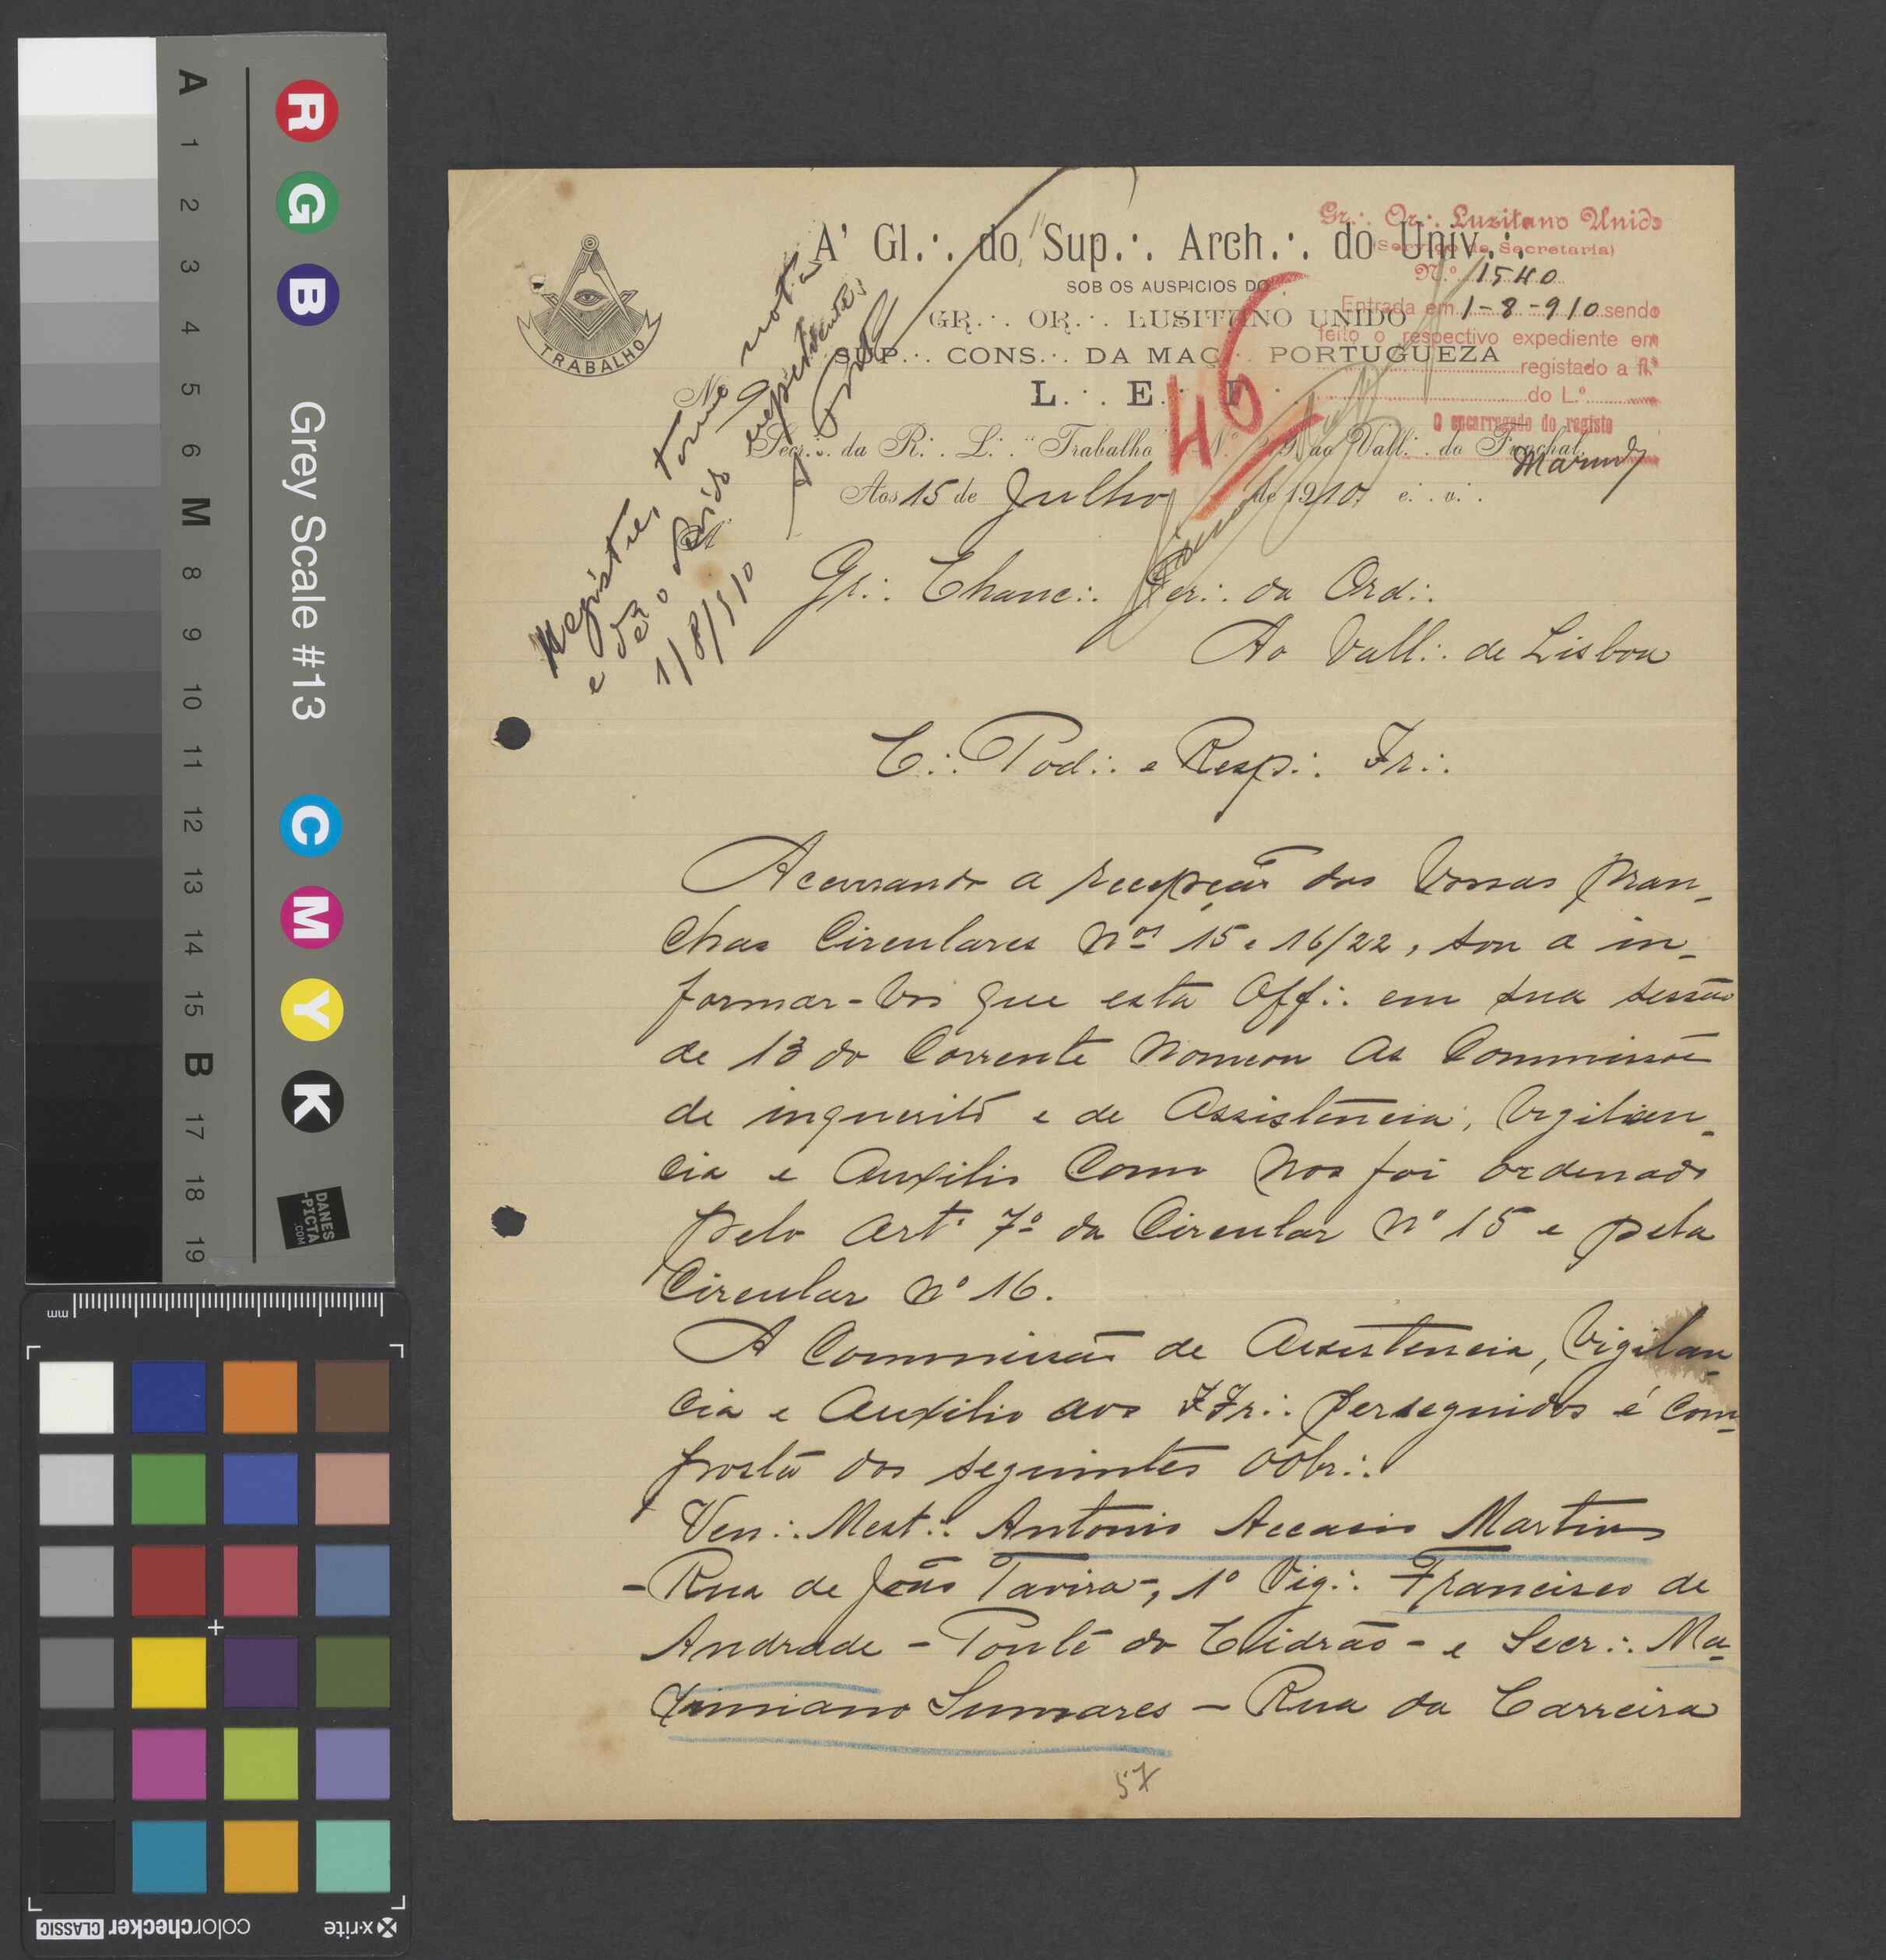 A' Gl.·. do Sup.·. Arch.·. do Univ.·.
SOB OS AUSPICIOS DO
GR.·. OR.·. LUSITANO UNIDO
SUP.·. CONS.·. DA MAÇ.·. PORTUGUEZA
L.·. E.·. F.·.
TRABALHO
Secr.·. da R.·. L.·. "Trabalho" N.º ao Vall.·. do Funchal.
Aos 15 de Julho de 1910 e.·. v.·.
Gr.·. Or.·. Lusitano Unido
(Serviço de Secretaria)
N.º 1540
Entrada em 1-8-910 sendo
feito o respectivo expediente em
registado a fl.ˢ
do L.º
O encarregado do registo
46
Registre, tome nota
e dê o devido expediente
1/8/910
Gr.·. Chanc.·. Ger.·. da Ord.·.
Ao Vall.·. de Lisboa
C.·. Pod.·. e Resp.·. Ir.·.
Accusando a recepção das Vossas Pran-
chas Circulares Nos 15 e 16/22, sou a in-
formar-Vos que esta Off.·. em sua sessão
de 13 do Corrente Nomeou as Commissões
de inquerito e de Assistencia, Vigilan-
cia e Auxilio Como Nos foi ordenado
pelo Artº 7º da Circular Nº 15 e pela
Circular Nº 16.
A Commissão de Assistencia, Vigilan-
cia e Auxilio aos IIr.·. Perseguidos é Com-
posta dos seguintes OObr.·.
Ven.·. Mest.·. Antonio Accacio Martins
- Rua de João Tavira -, 1º Vig.·. Francisco de
Andrade - Ponte do Cidrão - e Secr.·. Ma-
ximiano Sumares - Rua da Carreira
57
A
1
2
3
4
5
6
M
8
9
10
11
12
13
14
15
B
17
18
19
R
G
B
Grey Scale #13
C
M
Y
K
DANES
-PICTA
.COM
mm
x-rite
colorchecker CLASSIC